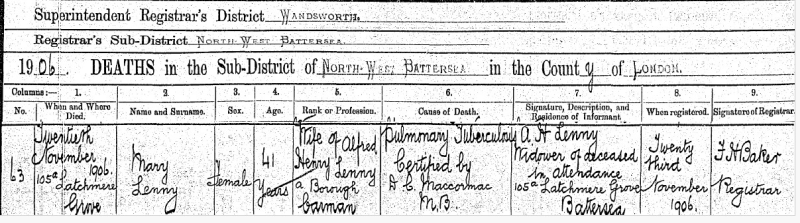 Superintendent Registrar's District WANDSWORTH.
Registrar's Sub-District NORTH-WEST BATTERSEA
1906. DEATHS in the Sub-District of NORTH-WEST BATTERSEA in the County of LONDON.
Columns:— 1. 2. 3. 4. 5. 6. 7. 8. 9.
No. When and Where Died. Name and Surname. Sex. Age. Rank or Profession. Cause of Death. Signature, Description, and Residence of Informant When registered. Signature of Registrar
63
Twentieth
November
1906.
105a Latchmere
Grove
Mary
Lenny
Female
41
Years
Wife of Alfred
Henry Lenny
a Borough
Carman
Pulmonary Tuberculosis
Certified by
D C. Maccormac
M.B.
A H Lenny
Widower of deceased
In attendance
105a Latchmere Grove
Battersea
Twenty
third
November
1906.
F H Baker
Registrar